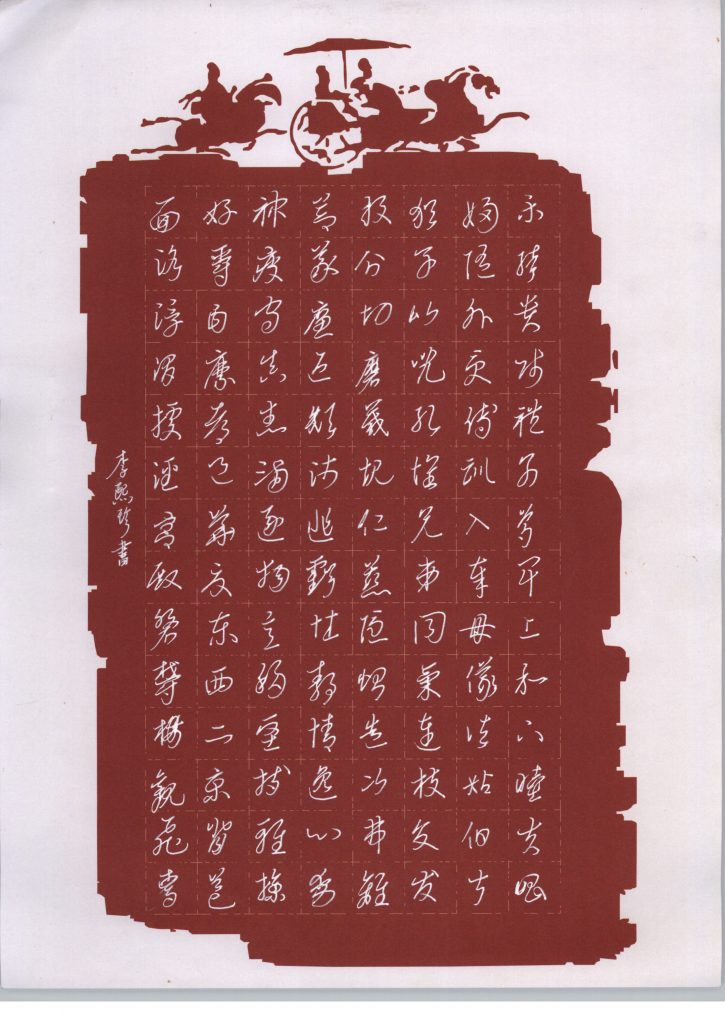 樂殊貴賤禮別尊卑上和下睦夫唱
婦隨外受傅訓入奉母儀諸姑伯叔
猶子比兒孔懷兄弟同氣連枝交友
投分切磨箴規仁慈隱惻造次弗離
節義廉退顛沛匪虧性靜情逸心動
神疲守真志滿逐物意移堅持雅操
好爵自縻都邑華夏東西二京背邙
面洛浮渭據涇宮殿盤鬱樓觀飛驚
李熙珍書